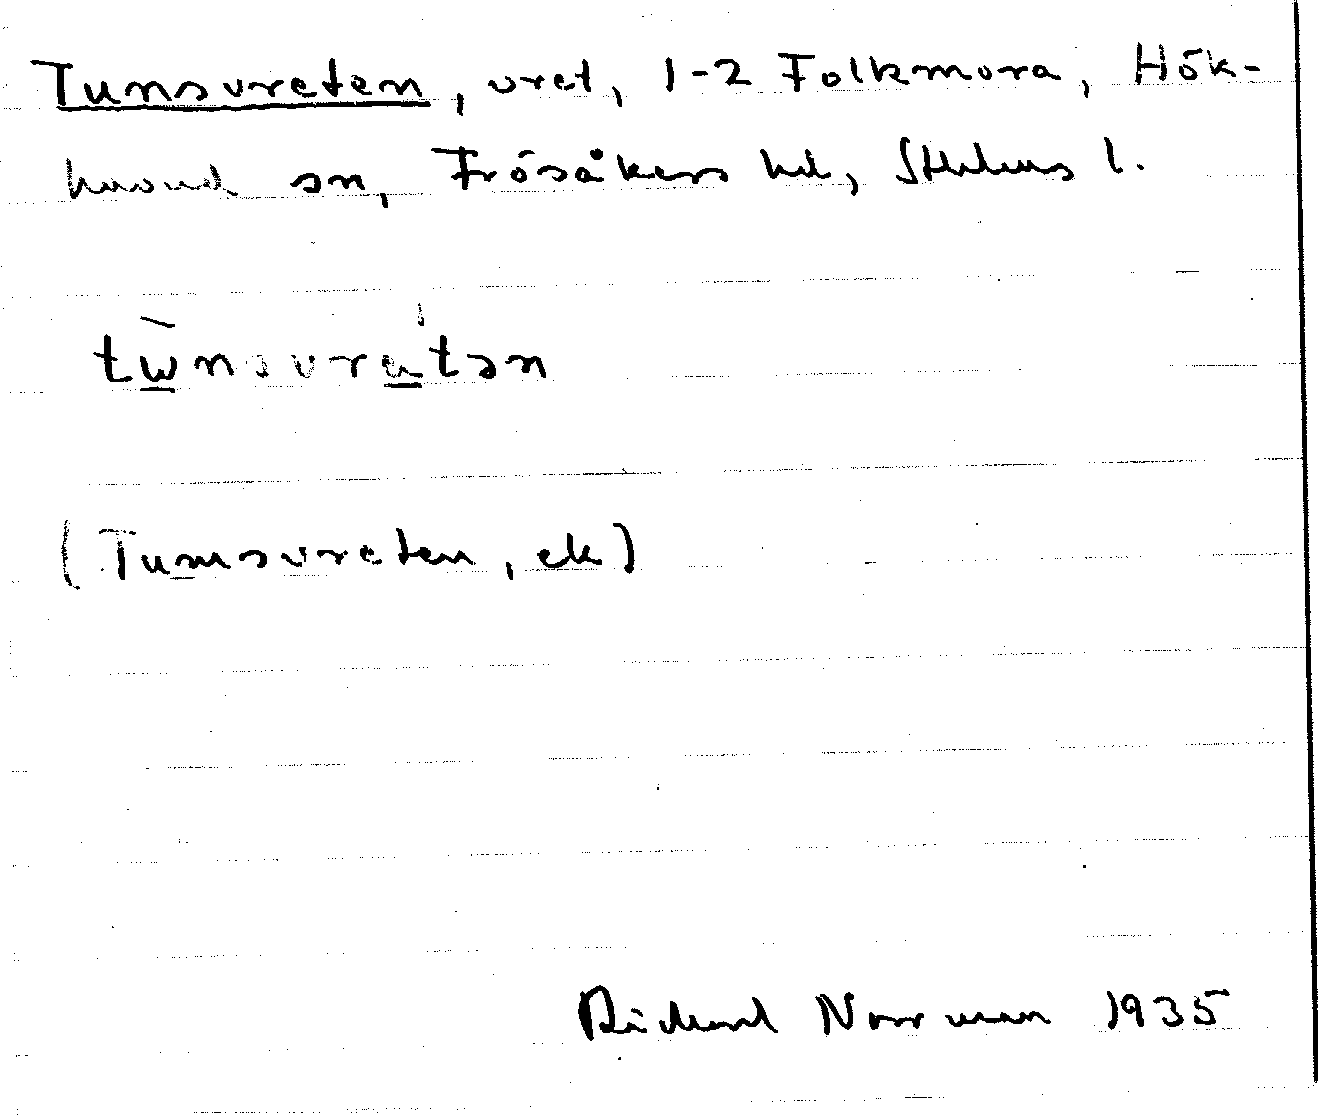 Tunsvreten, vret, 1-2 Folkmora, Hök-
huvud sn, Frösåkers hd, Sthlms l.
tẁnsvratən
(Tumsvreten, ek)
Richard Norrman 1935